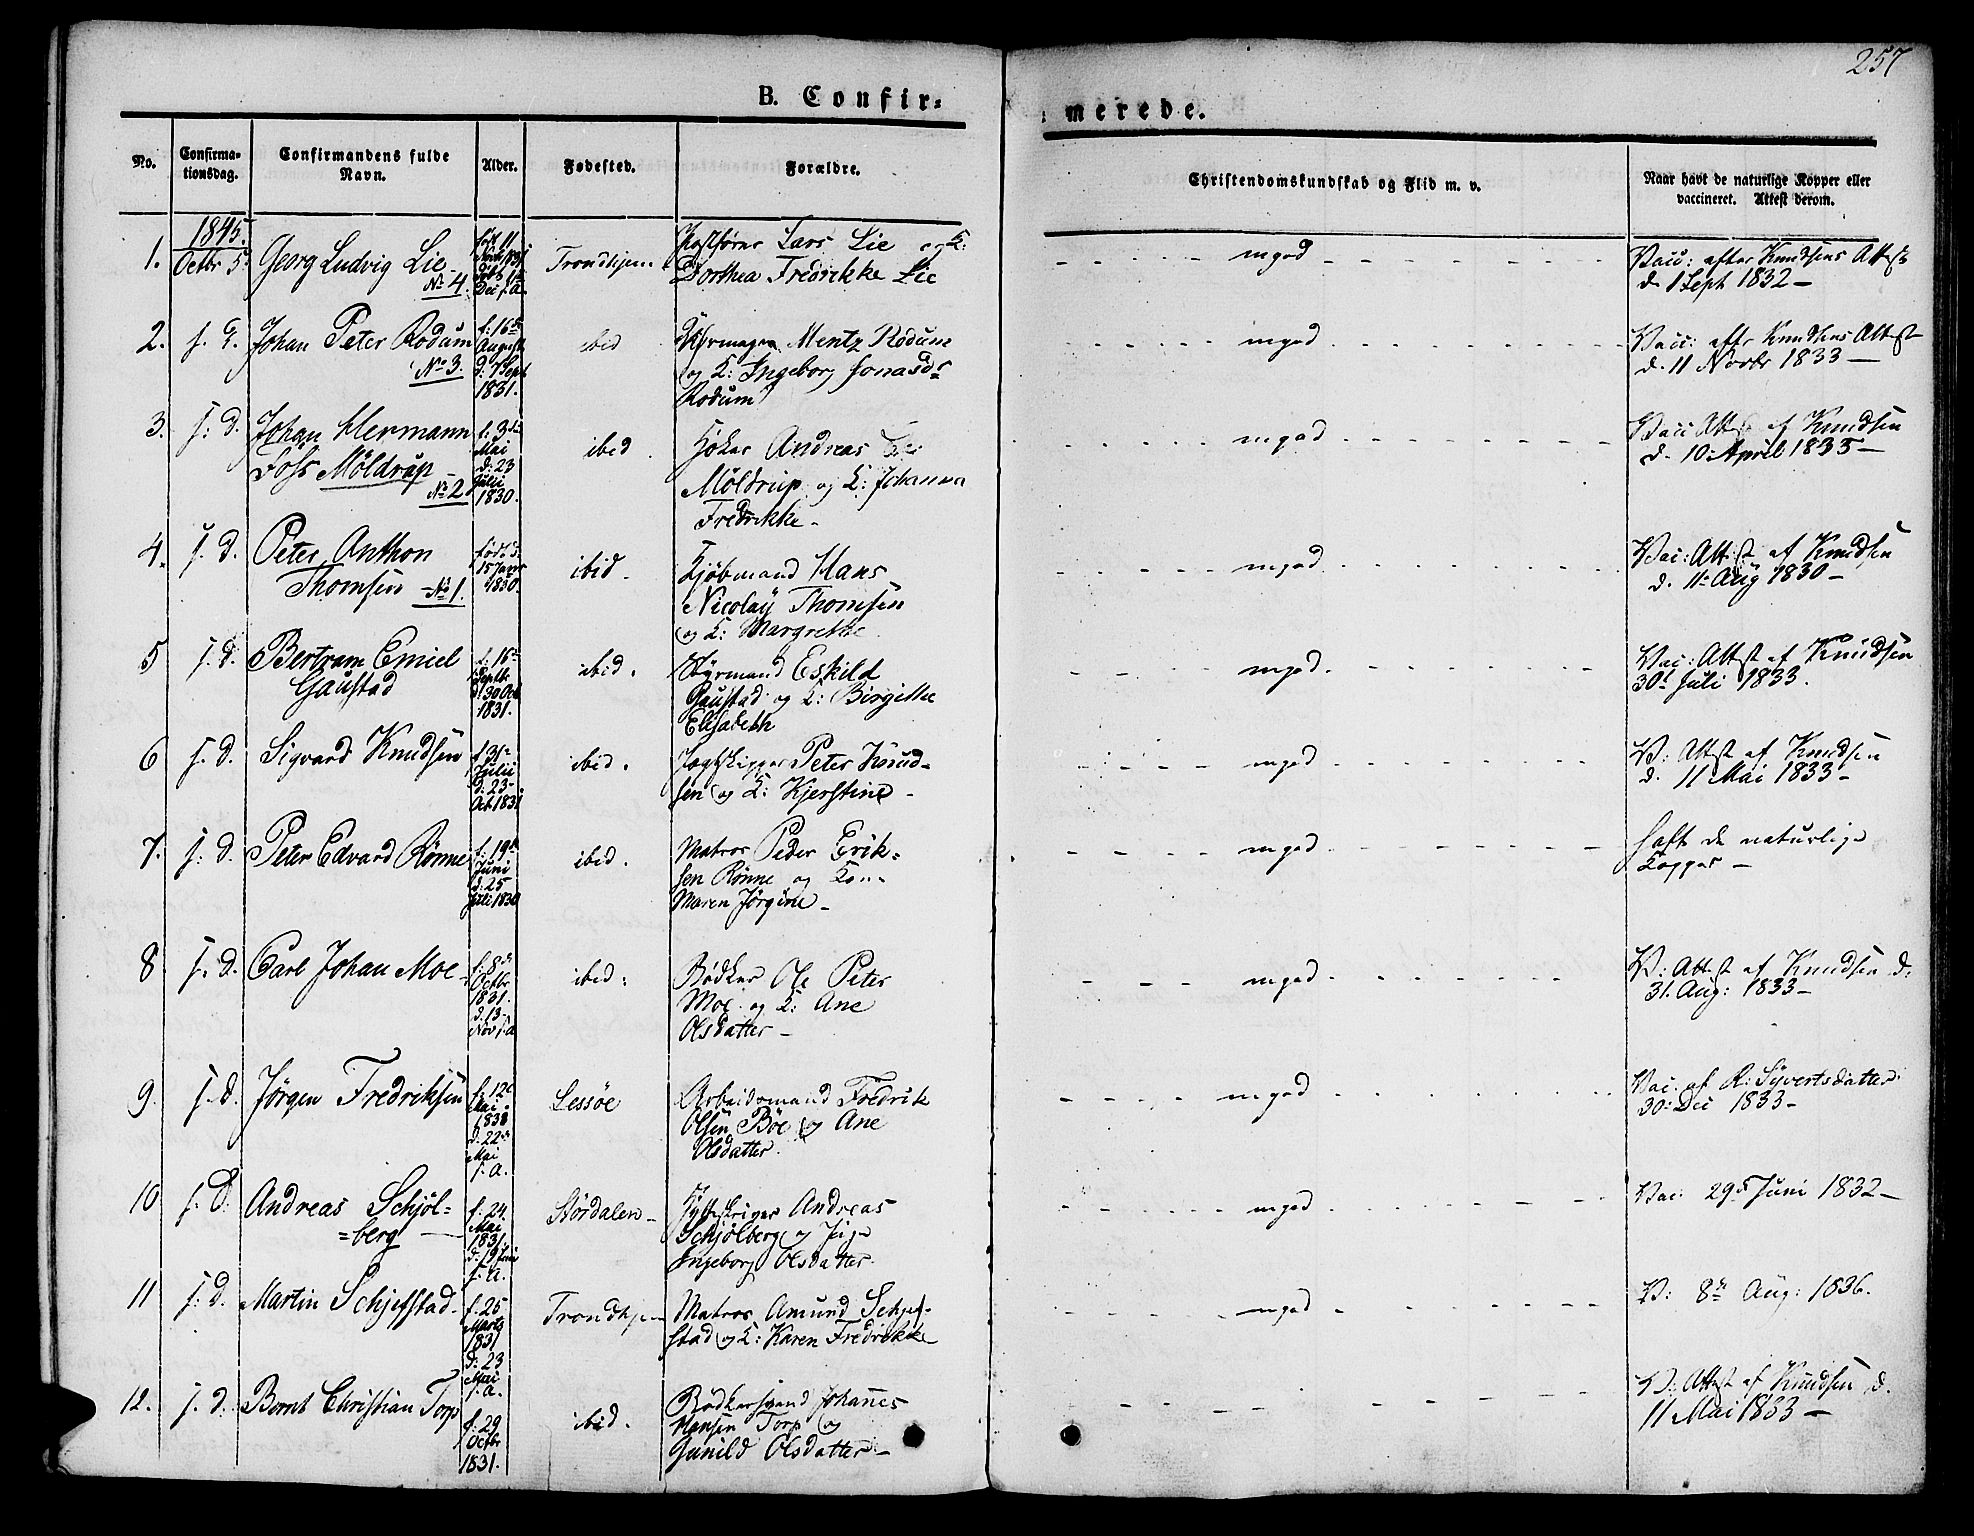 257
B. Confir=
=merede.
No.
Confirma-
tionsdag.
Confirmandens fulde
Navn.
Alder.
Fødested.
Forældre.
Christendomskundskab og Flid m. v.
Naar havt de naturlige Kopper eller
vaccineret. Attest derom.
1845.
1. Octbr 5. Georg Ludvig Lie
No 4.
Trondhjem
Lars Lie og K:
Dorthea Fredrikke Lie
mgod
Vacc: efter Knudsens Attest
d. 1 Sept 1832 –
2. s. d. Johan Peter Rodum
No 3.
f: 16
August
d. 7 Sept
1831.
ibid
Mentz Rodum
og K: Ingeborg Jonasdr
Rodum
mgod
Vacc: efter Knudsens Attest
d. 11 Novbr 1833 –
3. s: d. Johan Hermann
Foss Möldrup
No 2
f: 3
Mai
d: 23
Julii
1830.
ibid.
Höker Andreas
Möldrup og K: Johanna
Fredrikke –
mgod
Vacc Attest af Knudsen
d. 10. April 1835 –
4. s. d. Peter Anthon
Thomsen No 1.
født
15 Janr
1830.
ibid.
Kjöbmand Hans
Nicolay Thomsen
og K: Margrethe
mgod
Vac: Attest af Knudsen
d. 11 Aug 1830 –
5 s. d. Bertram Emiel
Gaustad
f: 16
Septbr
d. 30 Oct
1831.
ibid.
Styrmand Eskild
Gaustad og K: Birgitte
Elisabeth
mgod.
Vac: Attest af Knudsen
30 Juli 1833.
6 s. d. Sigvard Knudsen
f. 31
Julii
d: 23
Oct 1831
ibid.
Jagtskipper Peter Knud-
sen og K: Kjerstine –
mgod
V: Attest af Knudsen
d. 11 Mai 1833 –
7. s: d. Peter Edvard Rönne
f: 19
Juni
d: 25
Juli 1830
ibid.
Matros Peder Erik-
sen Rönne og Kone
Maren Jörgine –
mgod
haft de naturlige
Kopper –
8 s. d. Carl Johan Moe
f: 8
Octbr
1831.
d. 13
Nov s. a
ibid:
Bödker Ole Peter
Moe og K: Ane
Olsdatter –
mgod
V: Attest af Knudsen d.
31. Aug: 1833 –
9. s. d. Jörgen Fredriksen
f: 12
Mai
d. 22
Mai
s. a.
Lessöe
Arbeidsmand Fredrik
Olsen Böe og Ane
Olsdatter.
mgod
Vac. af R: Syvertsdatter
30 Dec 1833 –
10 s. d: Andreas Schjöl=
=berg
f. 24.
Mai
1831.
d: 19 Juni
s. a.
Stördalen –
Andreas
Schjölberg og Pige
Ingeborg Olsdatter.
mgod
Vac: 29 Juni 1832 –
11 s: d. Martin Schjefstad
f. 25
Marts
1831
d: 23
Mai
s. a.
Trondhjem
Matros Amund Schjef-
stad og K: Karen Fredrikke
mgod
V: 8 Aug: 1836.
12. s. d. Bernt Christian Torp
f: 29
Octbr
1831.
ibid.
Bödkersvend Johannes
Hansen Torp og
Gunild Olsdatter –
V: Attest af Knudsen d.
11 Mai 1833 –